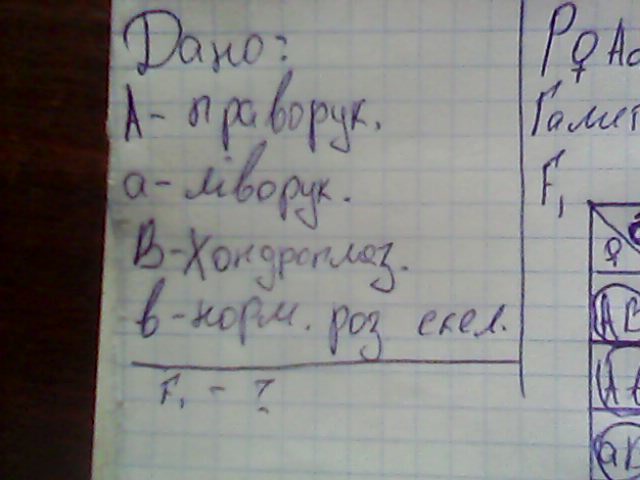 Дано:
А - праворук.
а - ліворук.
В - Хондроплаз.
в - норм. роз скел.
F₁ - ?
P ♀ Аа
Гамет
F₁
♀
АВ
Ав
аВ